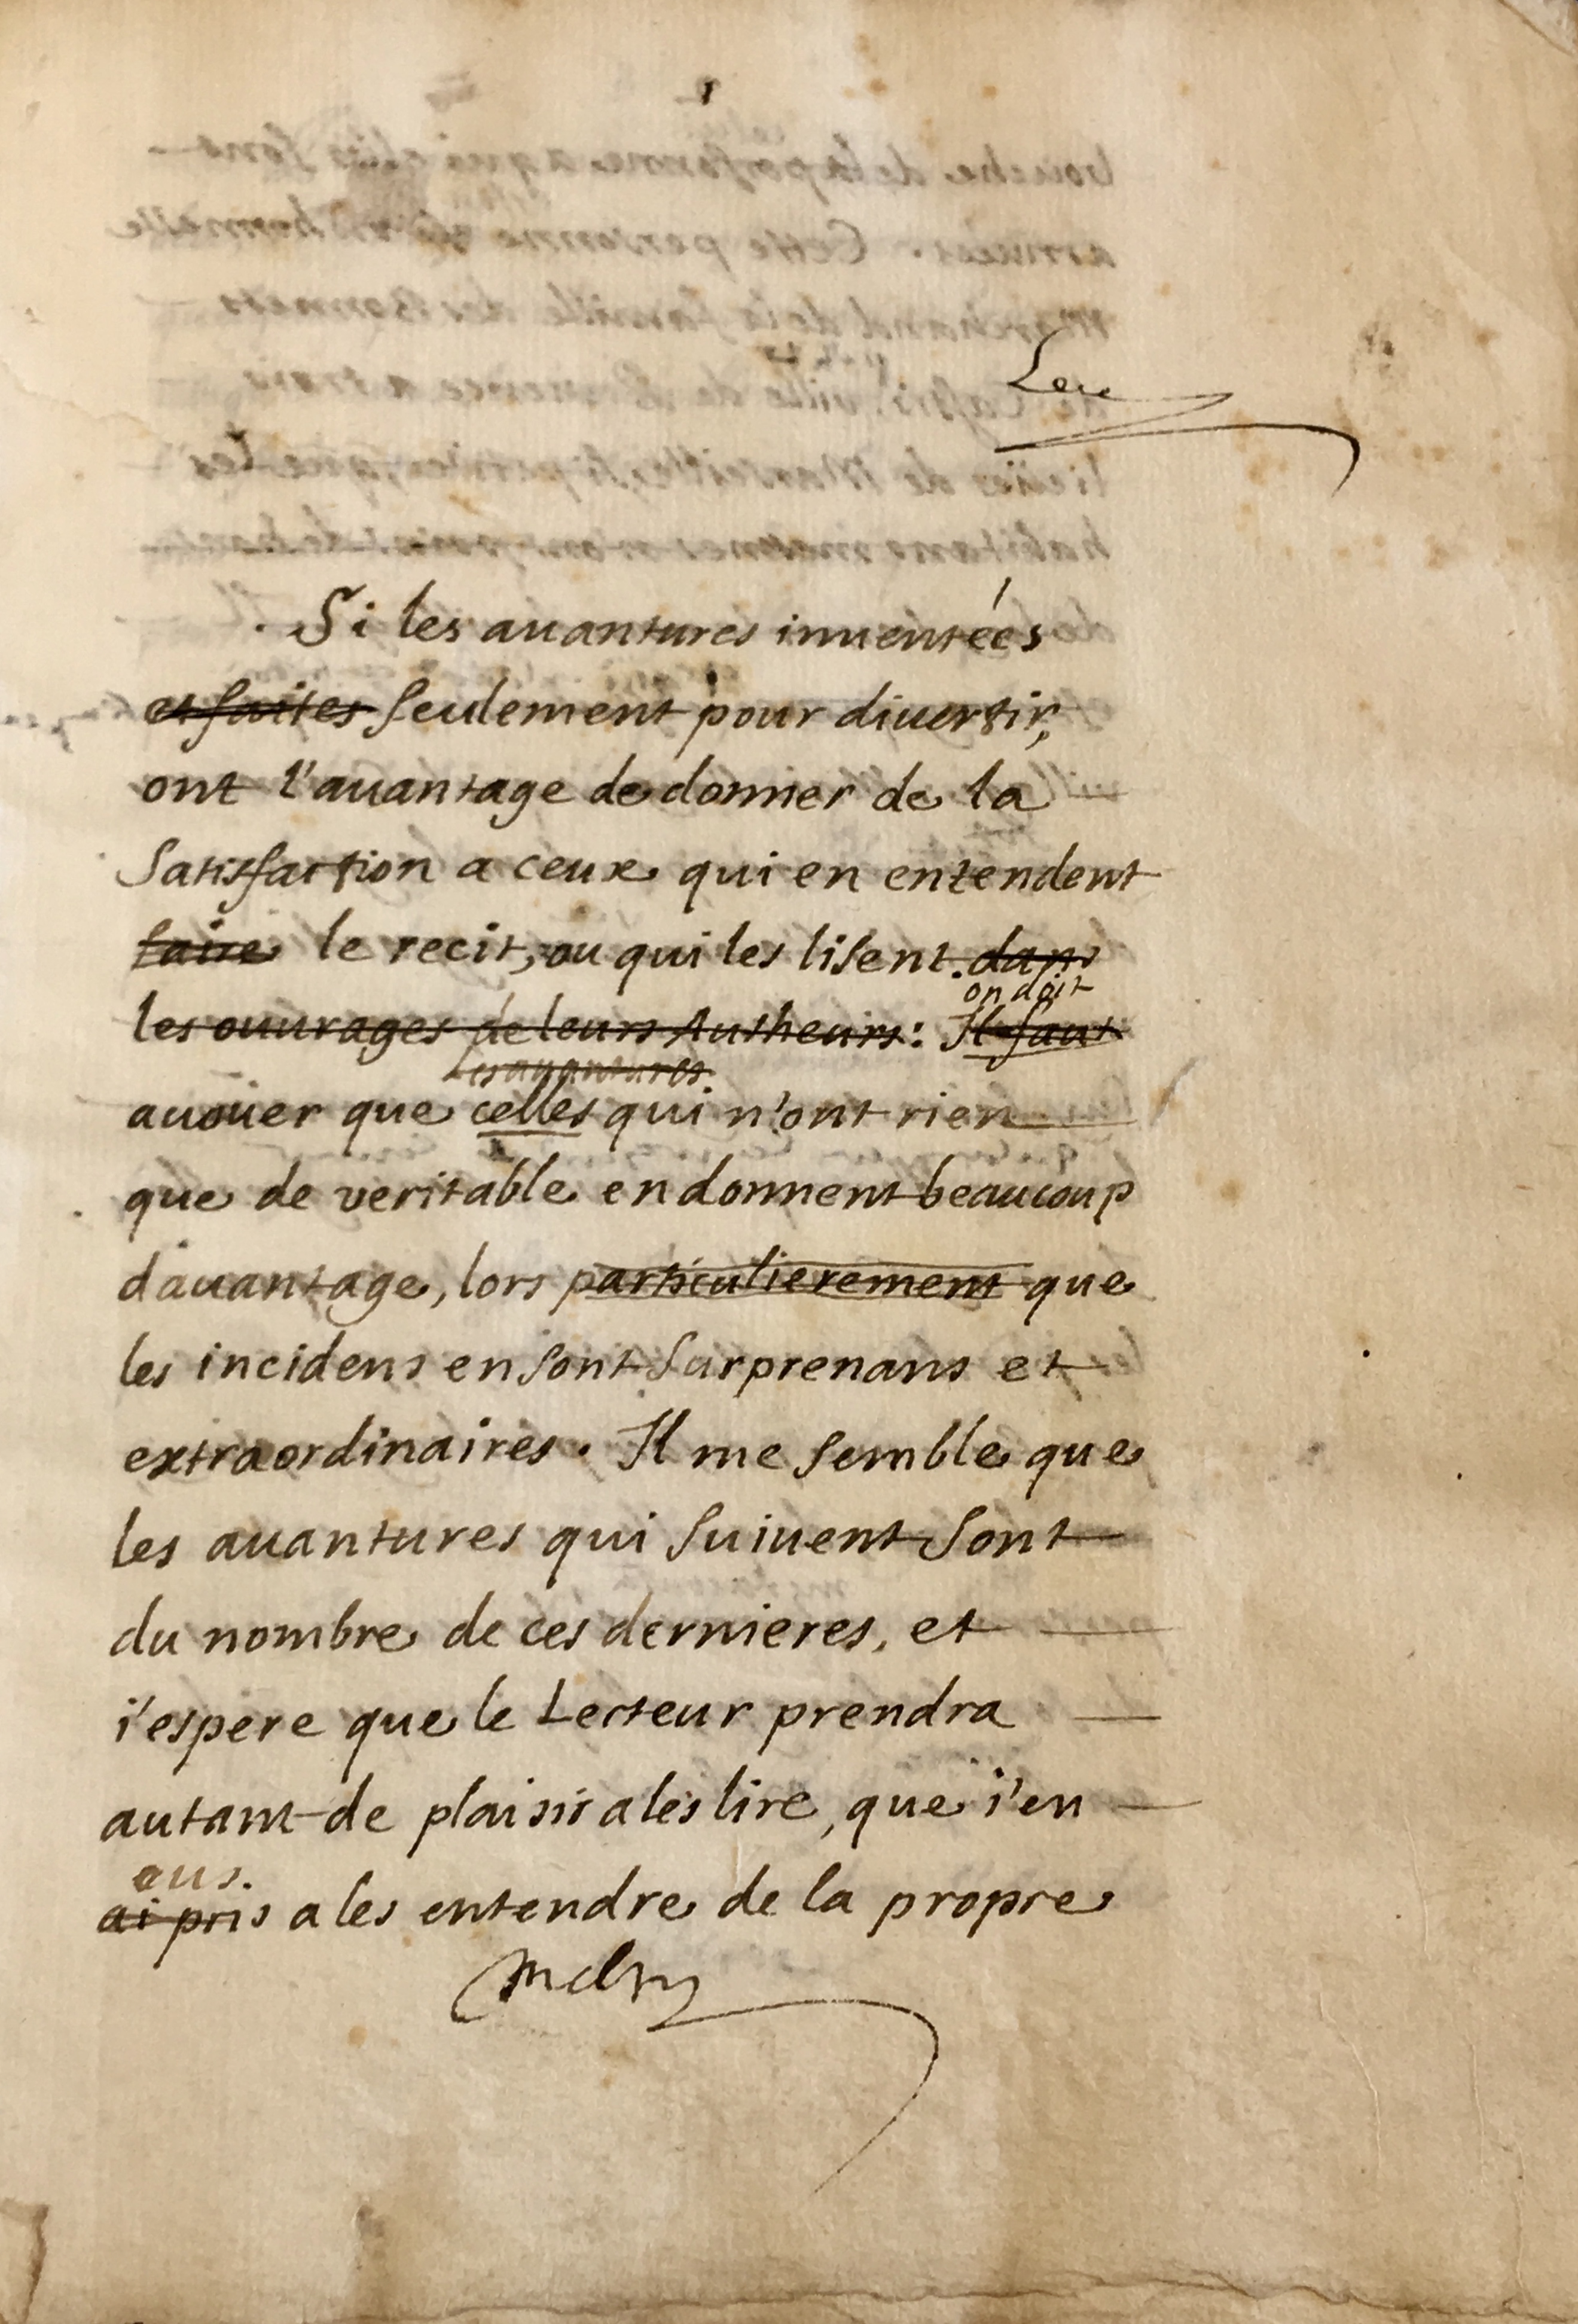 1
Leu
Si les auantures inuentées
et faites seulement pour diuertir,
ont l'auantage de donner de la
Satisfaction a ceux qui en entendent
faire le recit, ou qui les lisent. dans
on doit
les ouurages de leurs Autheurs: Il faut
les auantures
auoüer que celles qui n'ont rien
que de veritable en donnent beaucoup
dauantage, lors particulierement que
les incidens en sont surprenans et
extraordinaires. Il me semble que
les auantures qui suiuent sont
du nombre de ces dernieres, et
i'espere que le Lecteur prendra
autant de plaisir a les lire, que i'en
eus.
ai pris a les entendre de la propre